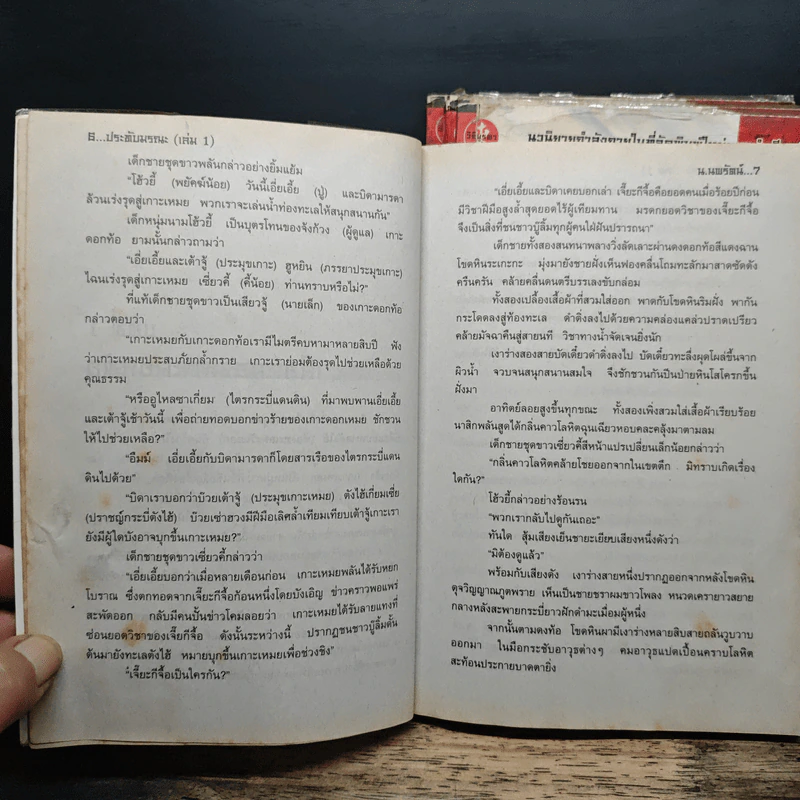 6...ประทับมรณะ (เล่ม 1)
เด็กชายชุดขาวพลันกล่าวอย่างยิ้มแย้ม
“โฮ้วยี้ (พยัคฆ์น้อย) วันนี้เอี่ยเอี้ย (ปู่) และบิดามารดา
ล้วนเร่งรุดสู่เกาะเหมย พวกเราจะเล่นน้ำท่องทะเลให้สนุกสนานกัน”
เด็กหนุ่มนามโฮ้วยี้ เป็นบุตรโทนของจังก้วง (ผู้ดูแล) เกาะ
ดอกท้อ ยามนั้นกล่าวถามว่า
“เอี่ยเอี้ยและเต้าจู้ (ประมุขเกาะ) ฮูหยิน (ภรรยาประมุขเกาะ)
ไฉนเร่งรุดสู่เกาะเหมย เซี่ยวคี้ (คี้น้อย) ท่านทราบหรือไม่?”
ที่แท้เด็กชายชุดขาวเป็นเสียวจู้ (นายเล็ก) ของเกาะดอกท้อ
กล่าวตอบว่า
“เกาะเหมยกับเกาะดอกท้อเรามีไมตรีคบหามาหลายสิบปี ฟัง
ว่าเกาะเหมยประสบภัยกล้ำกราย เกาะเราย่อมต้องรุดไปช่วยเหลือด้วย
คุณธรรม
“หรืออูไหลซาเกี่ยม (ไตรกระบี่แดนดิน) ที่มาพบพานเอี่ยเอี้ย
และเต้าจู้เช้าวันนี้ เพื่อถ่ายทอดบอกข่าวร้ายของเกาะดอกเหมย ชักชวน
ให้ไปช่วยเหลือ?”
“อืมม์ เอี่ยเอี้ยกับบิดามารดาก็โดยสารเรือของไตรกระบี่แดน
ดินไปด้วย”
“บิดาเราบอกว่าบ๊วยเต้าจู้ (ประมุขเกาะเหมย) ตังไฮ้เกี่ยมเซี่ย
(ปราชญ์กระบี่ตังไฮ้) บ๊วยเซ่าฮวงมีฝีมือเลิศล้ำเทียมเทียบเต้าจู้เกาะเรา
ยังมีผู้ใดบังอาจบุกขึ้นเกาะเหมย?”
เด็กชายชุดขาวเซี่ยวคี้กล่าวว่า
“เอี่ยเอี้ยบอกว่าเมื่อหลายเดือนก่อน เกาะเหมยพลันได้รับหยก
โบราณ ซึ่งตกทอดจากเจี๊ยะกีจื้อก้อนหนึ่งโดยบังเอิญ ข่าวคราวพอแพร่
สะพัดออก กลับมีคนปั้นข่าวโคมลอยว่า เกาะเหมยได้รับลายแทงที่
ซ่อนยอดวิชาของเจี๊ยกีจื้อ ดังนั้นระหว่างนี้ ปรากฏชนชาวบู๊ลิ้มดั้น
ด้นมายังทะเลตังไฮ้ หมายบุกขึ้นเกาะเหมยเพื่อช่วงชิง”
“เจี๊ยะกีจื้อเป็นใครกัน?”
น.นพรัตน์...7
“เอี่ยเอี้ยและบิดาเคยบอกเล่า เจี๊ยะกีจื้อคือยอดคนเมื่อร้อยปีก่อน
มีวิชาฝีมือสูงล้ำสุดยอดไร้ผู้เทียมทาน มรดกยอดวิชาของเจี๊ยะกีจื้อ
จึงเป็นสิ่งที่ชนชาวบู๊ลิ้มทุกผู้คนใฝ่ฝันปรารถนา”
เด็กชายทั้งสองสนทนาพลางวิ่งลัดเลาะผ่านดงดอกท้อสีแดงฉาน
โขดหินระเกะกะ มุ่งมายังชายฝั่งเห็นฟองคลื่นโถมทะลักมาสาดซัดดัง
ครืนครัน คล้ายคลื่นดนตรีบรรเลงขับกล่อม
ทั้งสองเปลื้องเสื้อผ้าที่สวมใส่ออก พาดกับโขดหินริมฝั่ง พากัน
กระโดดลงสู่ท้องทะเล ดำดิ่งลงไปด้วยความคล่องแคล่วปราดเปรียว
คล้ายมัจฉาคืนสู่สายนที วิชาทางน้ำจัดเจนยิ่งนัก
เงาร่างสองสายบัดเดี๋ยวดำดิ่งลงไป บัดเดี๋ยวทะลึ่งผุดโผล่ขึ้นจาก
ผิวน้ำ จวบจนสนุกสนานสมใจ จึงชักชวนกันปีนป่ายหินโสโครกขึ้น
ฝั่งมา
อาทิตย์ลอยสูงขึ้นทุกขณะ ทั้งสองเพิ่งสวมใส่เสื้อผ้าเรียบร้อย
นาสิกพลันสูดได้กลิ่นคาวโลหิตฉุนเฉียวหอบคละคลุ้งมาตามลม
เด็กชายชุดขาวเซี่ยวคี้สีหน้าแปรเปลี่ยนเล็กน้อยกล่าวว่า
“กลิ่นคาวโลหิตคล้ายโชยออกจากในเขตตึก มิทราบเกิดเรื่อง
ใดกัน?”
โฮ้วยี้กล่าวอย่างร้อนรน
“พวกเรากลับไปดูกันเถอะ”
ทันใด สุ้มเสียงเย็นชายะเยียบเสียงหนึ่งดังว่า
“มิต้องดูแล้ว”
พร้อมกับเสียงดัง เงาร่างสายหนึ่งปรากฏออกจากหลังโขดหิน
ดุจวิญญาณภูตพราย เห็นเป็นชายชราผมขาวโพลง หนวดเครายาวสยาย
กลางหลังสะพายกระบี่ยาวฝักดำมะเมื่อมผู้หนึ่ง
จากนั้นตามดงท้อ โขดหินผามีเงาร่างหลายสิบสายถลันวูบวาบ
ออกมา ในมือกระชับอาวุธต่างๆ คมอาวุธแปดเปื้อนคราบโลหิต
สะท้อนประกายบาดตายิ่ง